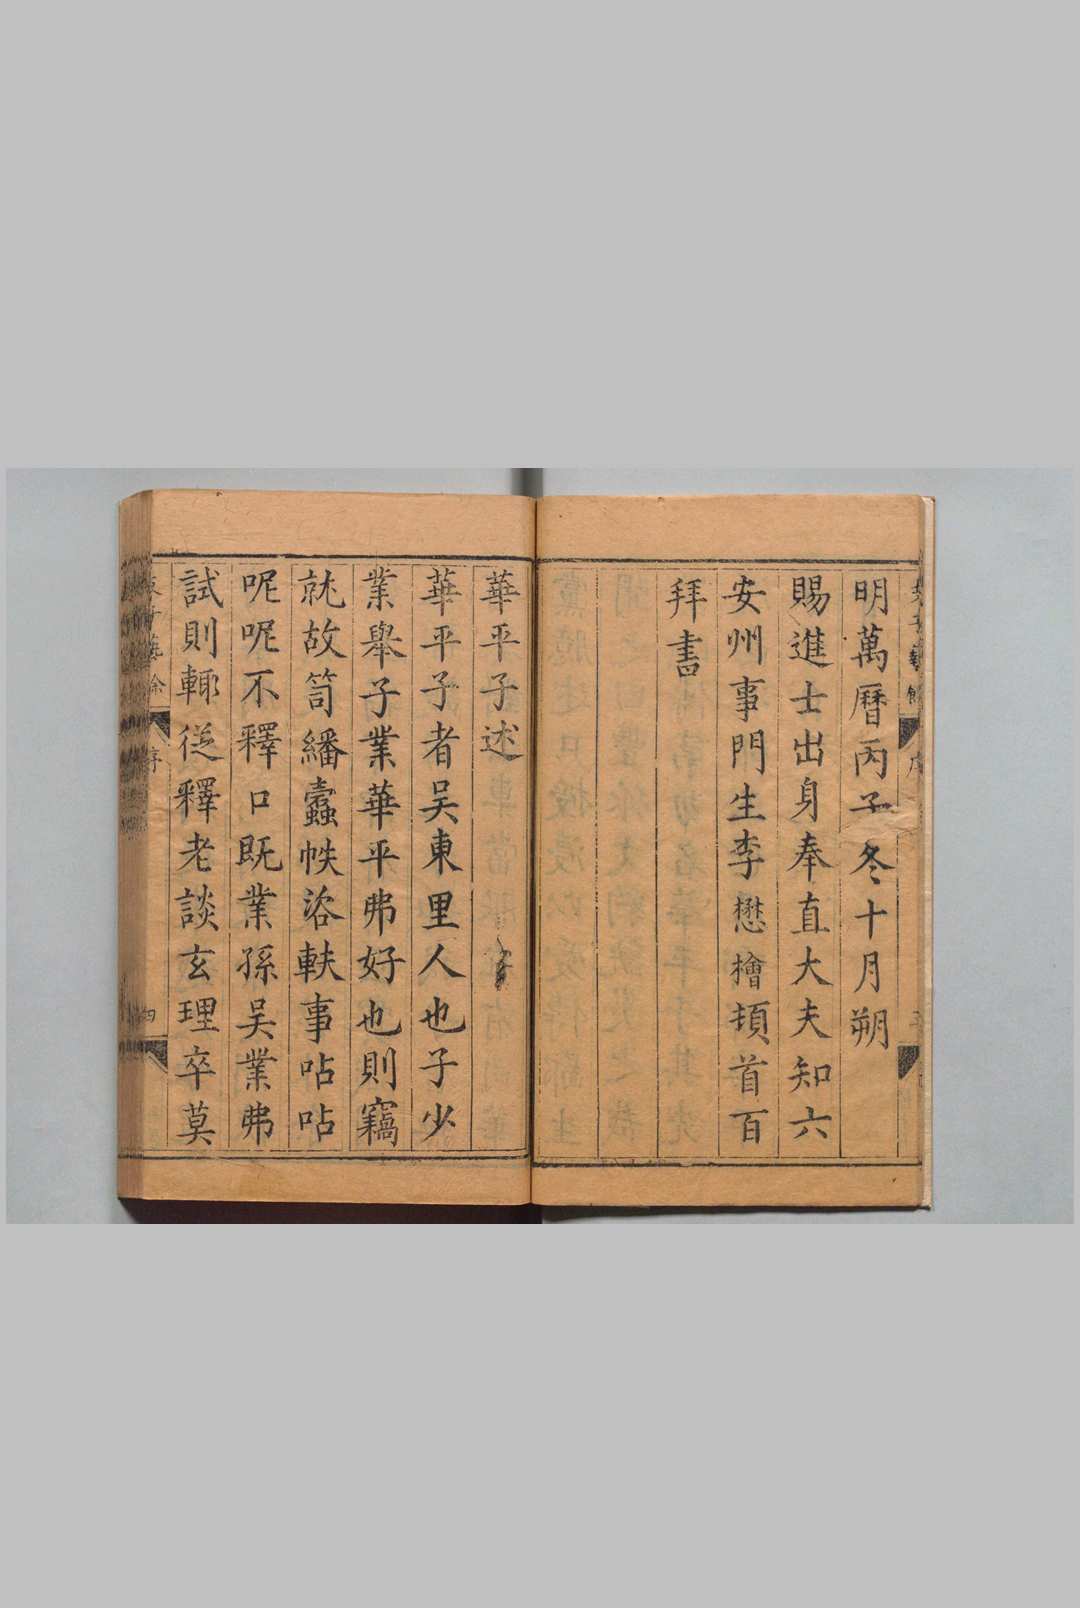 明萬曆丙子冬十月朔
賜進士出身奉直大夫知六
安州事門生李懋檜頓首百
拜書
華平子述
華平子者吴東里人也子少
業舉子業華平弗好也則竊
就故笥繙蠹帙浴軼事呫呫
呢呢不釋口既業孫吴業弗
試則輙從釋老談玄理卒莫
序
四